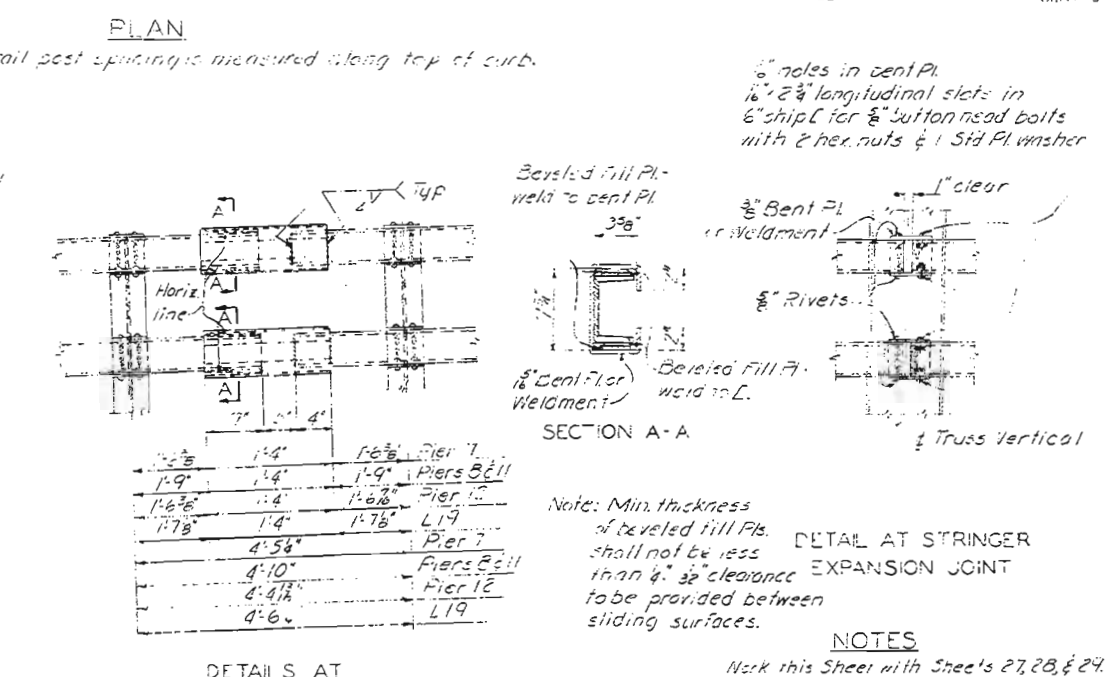 PLAN
rail post spacing is measured along top of curb.
holes in bent Pl.
2¾" longitudinal slots in
6" ship [ for ⅝" button head bolts
with 2 hex. nuts & 1 Std Pl. washer
Beveled Fill Pl.-
weld to bent Pl.
3⅝"
Typ
A
A
Horiz.
line
A
A
⅜" Bent Pl.
or Weldment
1" clear
⅝" Rivets
5/16" Bent Pl. or
Weldment
Beveled Fill Pl.-
weld to [.
SECTION A-A
℄ Truss Vertical
7" 4"
1'-4" 1'-6⅜" Pier 7
1'-9" 1'-4" 1'-9" Piers 8&11
1'-6⅜" 1'-4" 1'-6 7/16" Pier 12
1'-7⅛" 1'-4" 1'-7⅛" L19
4'-5¼" Pier 7
4'-10" Piers 8&11
Pier 12
L19
Note: Min. thickness
of beveled fill Pls.
shall not be less
than ¼". 1/32" clearance
to be provided between
sliding surfaces.
DETAIL AT STRINGER
EXPANSION JOINT
NOTES
Work this Sheet with Sheets 27, 28, & 29.
DETAILS AT